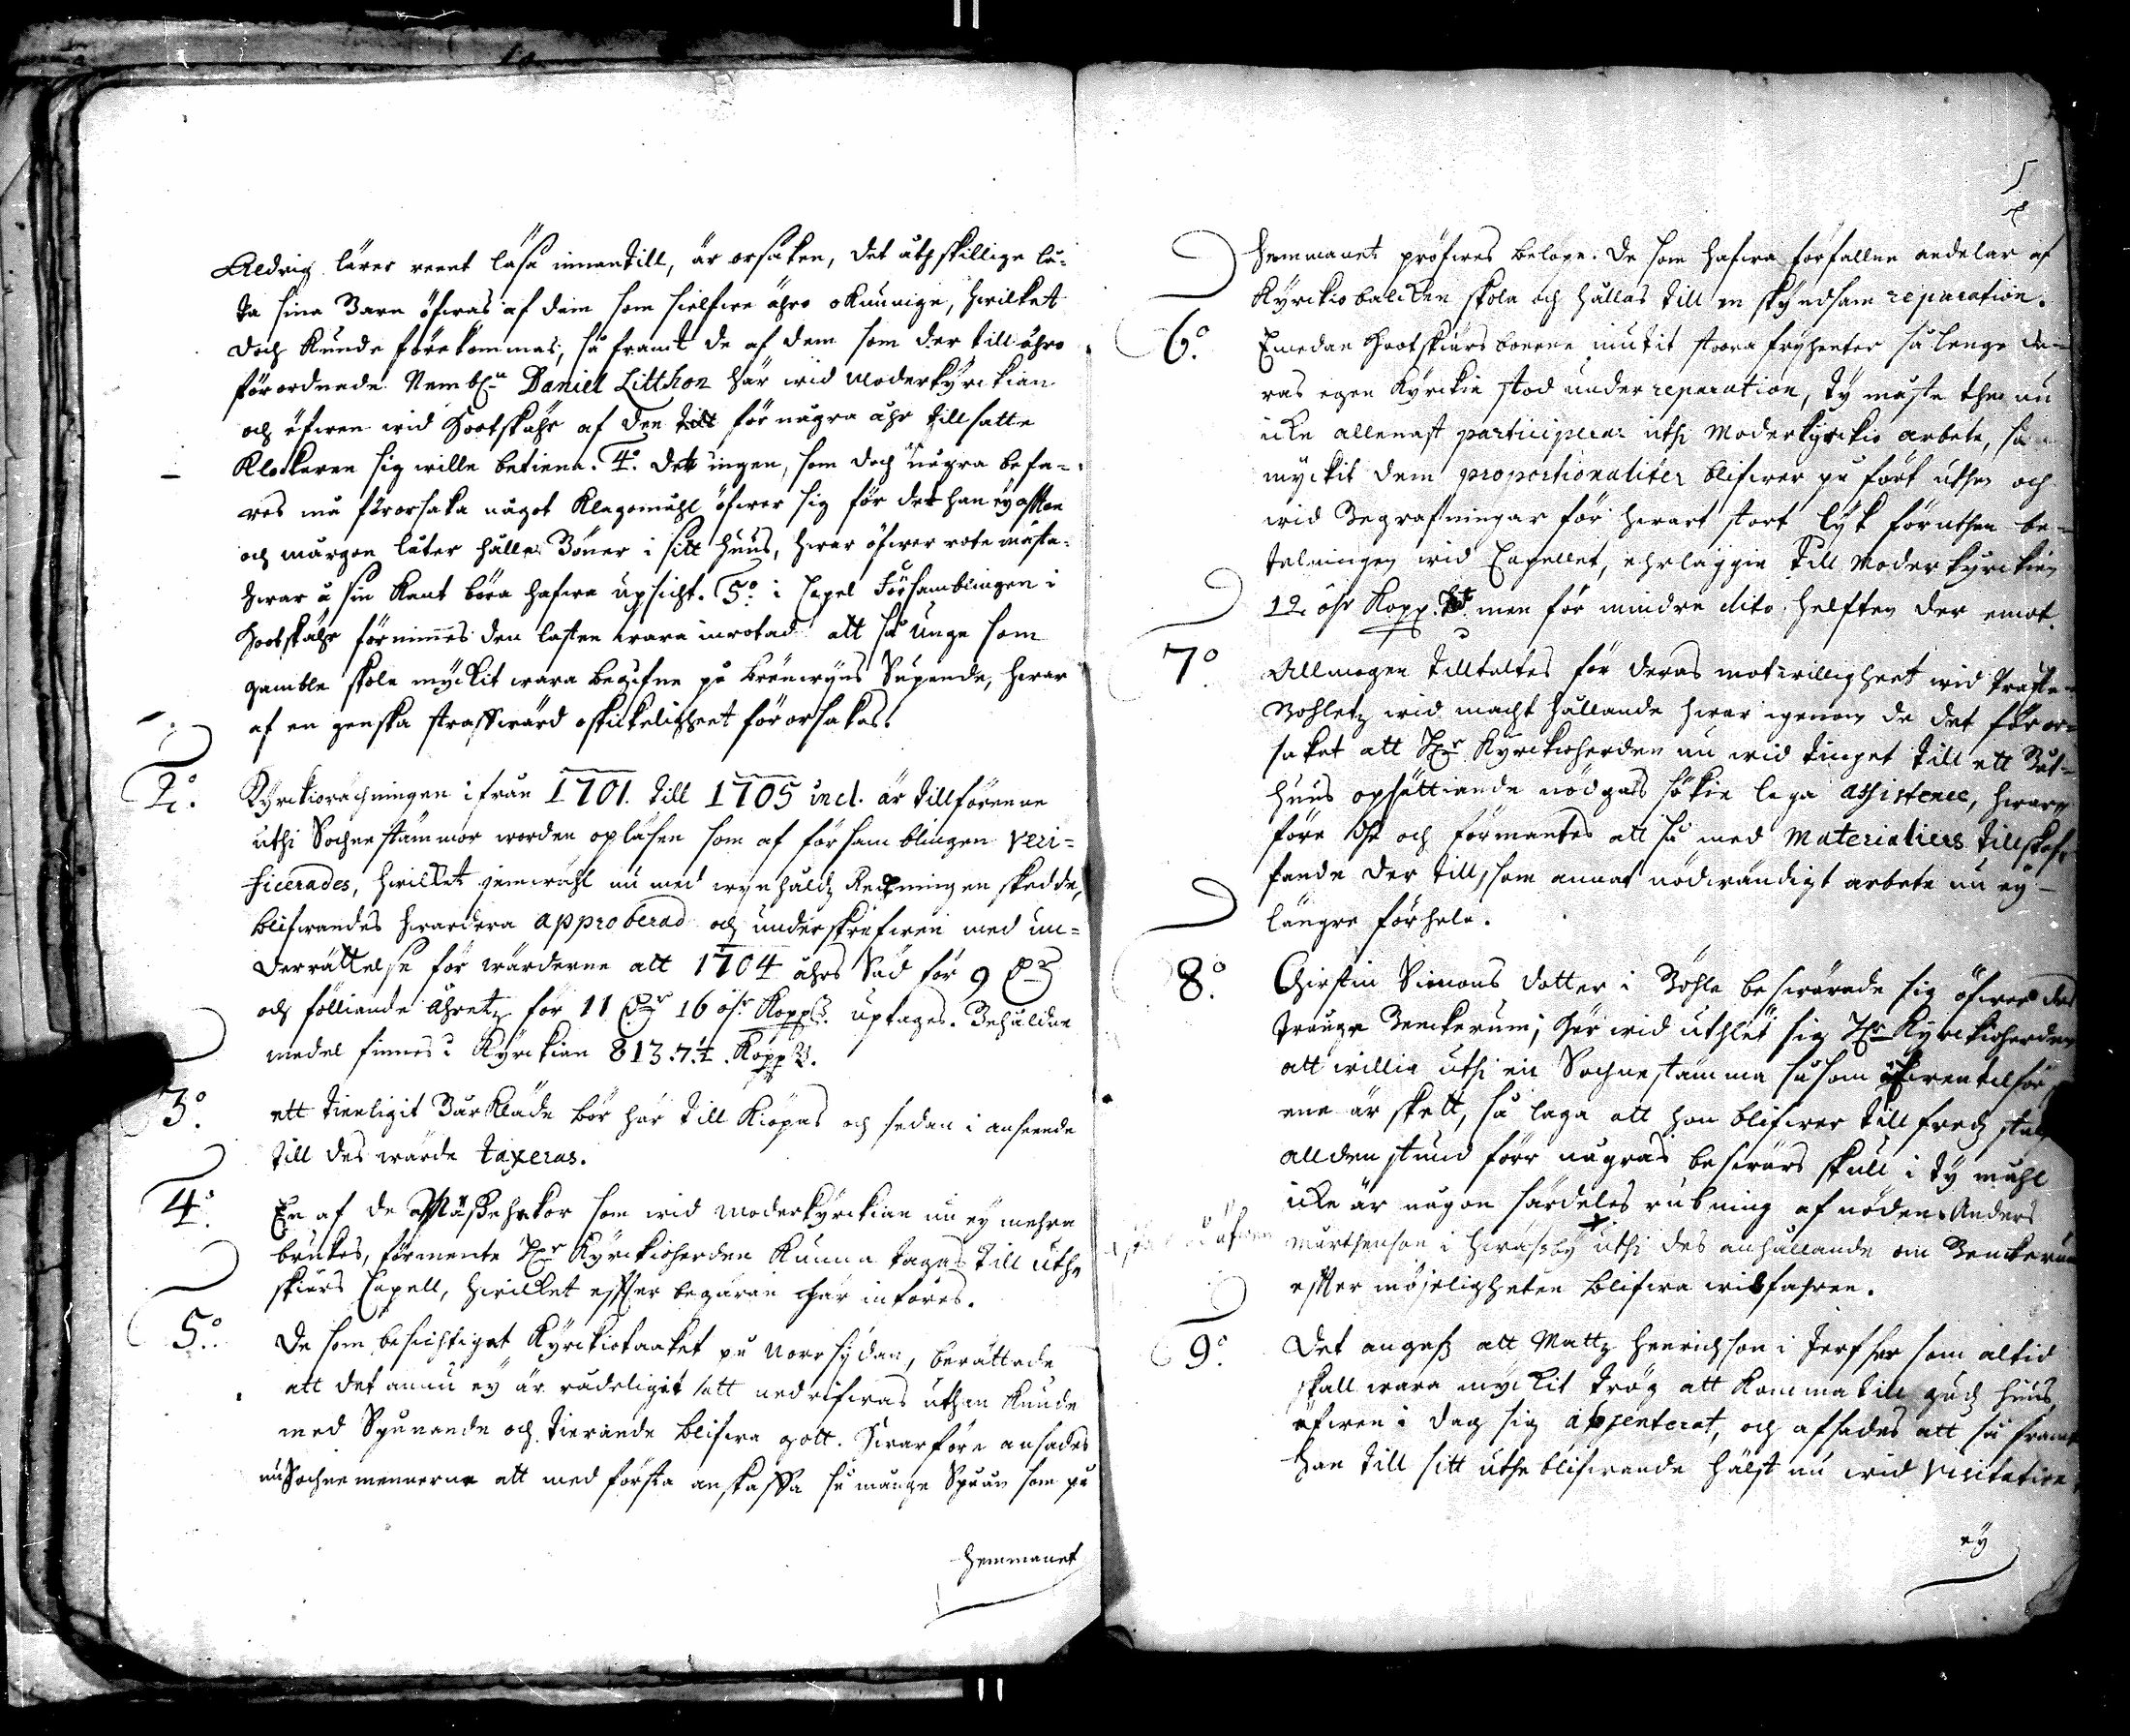 Aldrig lärer reent läsa innantill, är orsaken, det åthskillige lå-
ta sina Barn öfwas af dem som sielfwe ähro okunnige, hwilket
doch kunde förekommas, så framt de af dem som der till ähro
förordnede Nembl. Daniel Litthon här wid Moderkyrckian
och öfwen wid Hootskähr af den för några åhr tillsatte
Klockaren sig wille betiena. 4o. Dett ingen, som doch några befa-
res må förorsaka något klagomåhl öfwer sig för det han ey afton
och morgon låter hålla Böner i sitt huus, hwar öfwer rote mästa-
hwar å sin kant böra hafwa upsicht. 5o. i Capel Församblingen i
Hootskähr förnimmes den lasten wara inrotad att så unge som
gamble skola myckit wara begifne på brönwyns Supande, hwar
af en ganska straffwärd oskickeligheet förorsakas.
2o. Kyrckioräckningen ifrån 1701. till 1705 incl. är tillförenne
uthi Sochnestämmor worden opläsen som af församblingen veri-
ficerades, hwilket jemwähl nu med rekningen skedde,
blifwandes hwardera approberad och underskrefwen med un-
derrättelse för wärderne att 1704 åhrs Säd för 9
och fölliande åhretz för 11 16 öhr Kopp. uptages. Behåldne
medel finnes i Kyrckian 813.7.½. Kopp.
3o. ett tienligit Bårkläde bör här till kiöpas och sedan i anseende
till des wärde taxeras.
4o. En af de Mäßehakor som wid Moderkyrckian nu ey mehra
brukes, förmente Hr Kyrckioherden kunna tagas till uthe
skiärs Capell, hwilket effter begäran här införes.
5o. De som besichtigat Kyrckiotaaket på Norrsydan, berättade
att det ännu ey är rådeligit att nedrifwas uthan kunde
med Spånande och tierande blifwa gott. Hwarföre ansades
nu Sochnemennerne att med första anskaffa så många Spånn som på
hemmanet
5
hemmanet pröfwes belöpa. De som hafwa förfallne andelar af
Kyrckiobalcken skola och hållas till en skyndsam reparation.
6o. Emedan Hootskiärsboerne niutit stoora fryheeter så lenge de-
ras egen Kyrckia stod under reparation, ty måste the nu
icke allenast participera uthi Moderkyrckio arbete, så
myckit dem proportionaliter blifwer på fört uthan och
wid Begrafningar för hwart stort lyk föruthan be-
talningen wid Capellet, ehrläggia till Moderkyrckian
12. öhr Kopp. men för mindre dito helfften der emot.
7o. Allmogen tilltaltes för deras motwilligheet wid Präste-
Bohletz wid macht hållande hwar igenom de det föror-
saket att Hr Kyrckioherden nu wid tinget till ett Båt-
huus opsättiande nödgas sökia laga assistence, hwar
före the och förmantes att så med Materialiers tillskaf-
fande der till, som annat nödwändigt arbete nu ey
längre förhala.
8o. Chirstin Simons dotter i Böhle beswärade sig öfwer des
trånge Benckerum; här wid uthlät sig Hr Kyrckioherden
att willia uthi en Sochnestämma såsom
ene är skett, så laga att hon blifwer till fredz
alldenstund förr någras beswärs skull i ty måhl
icke är någon särdeles rubning af nöden. Anders
Mårthenson i uthi des anhållande om Benckerum
effter möjeligheeten blifwa wilfahren.
9o. Det angafz att Mattz Henrichson i som altid
skall wara myckit trög att komma till gudz huus,
öfwen i dag sig absenterat, och afsades att så framt
han till sitt uthe blifwande hälst nu wid Visitation
ey